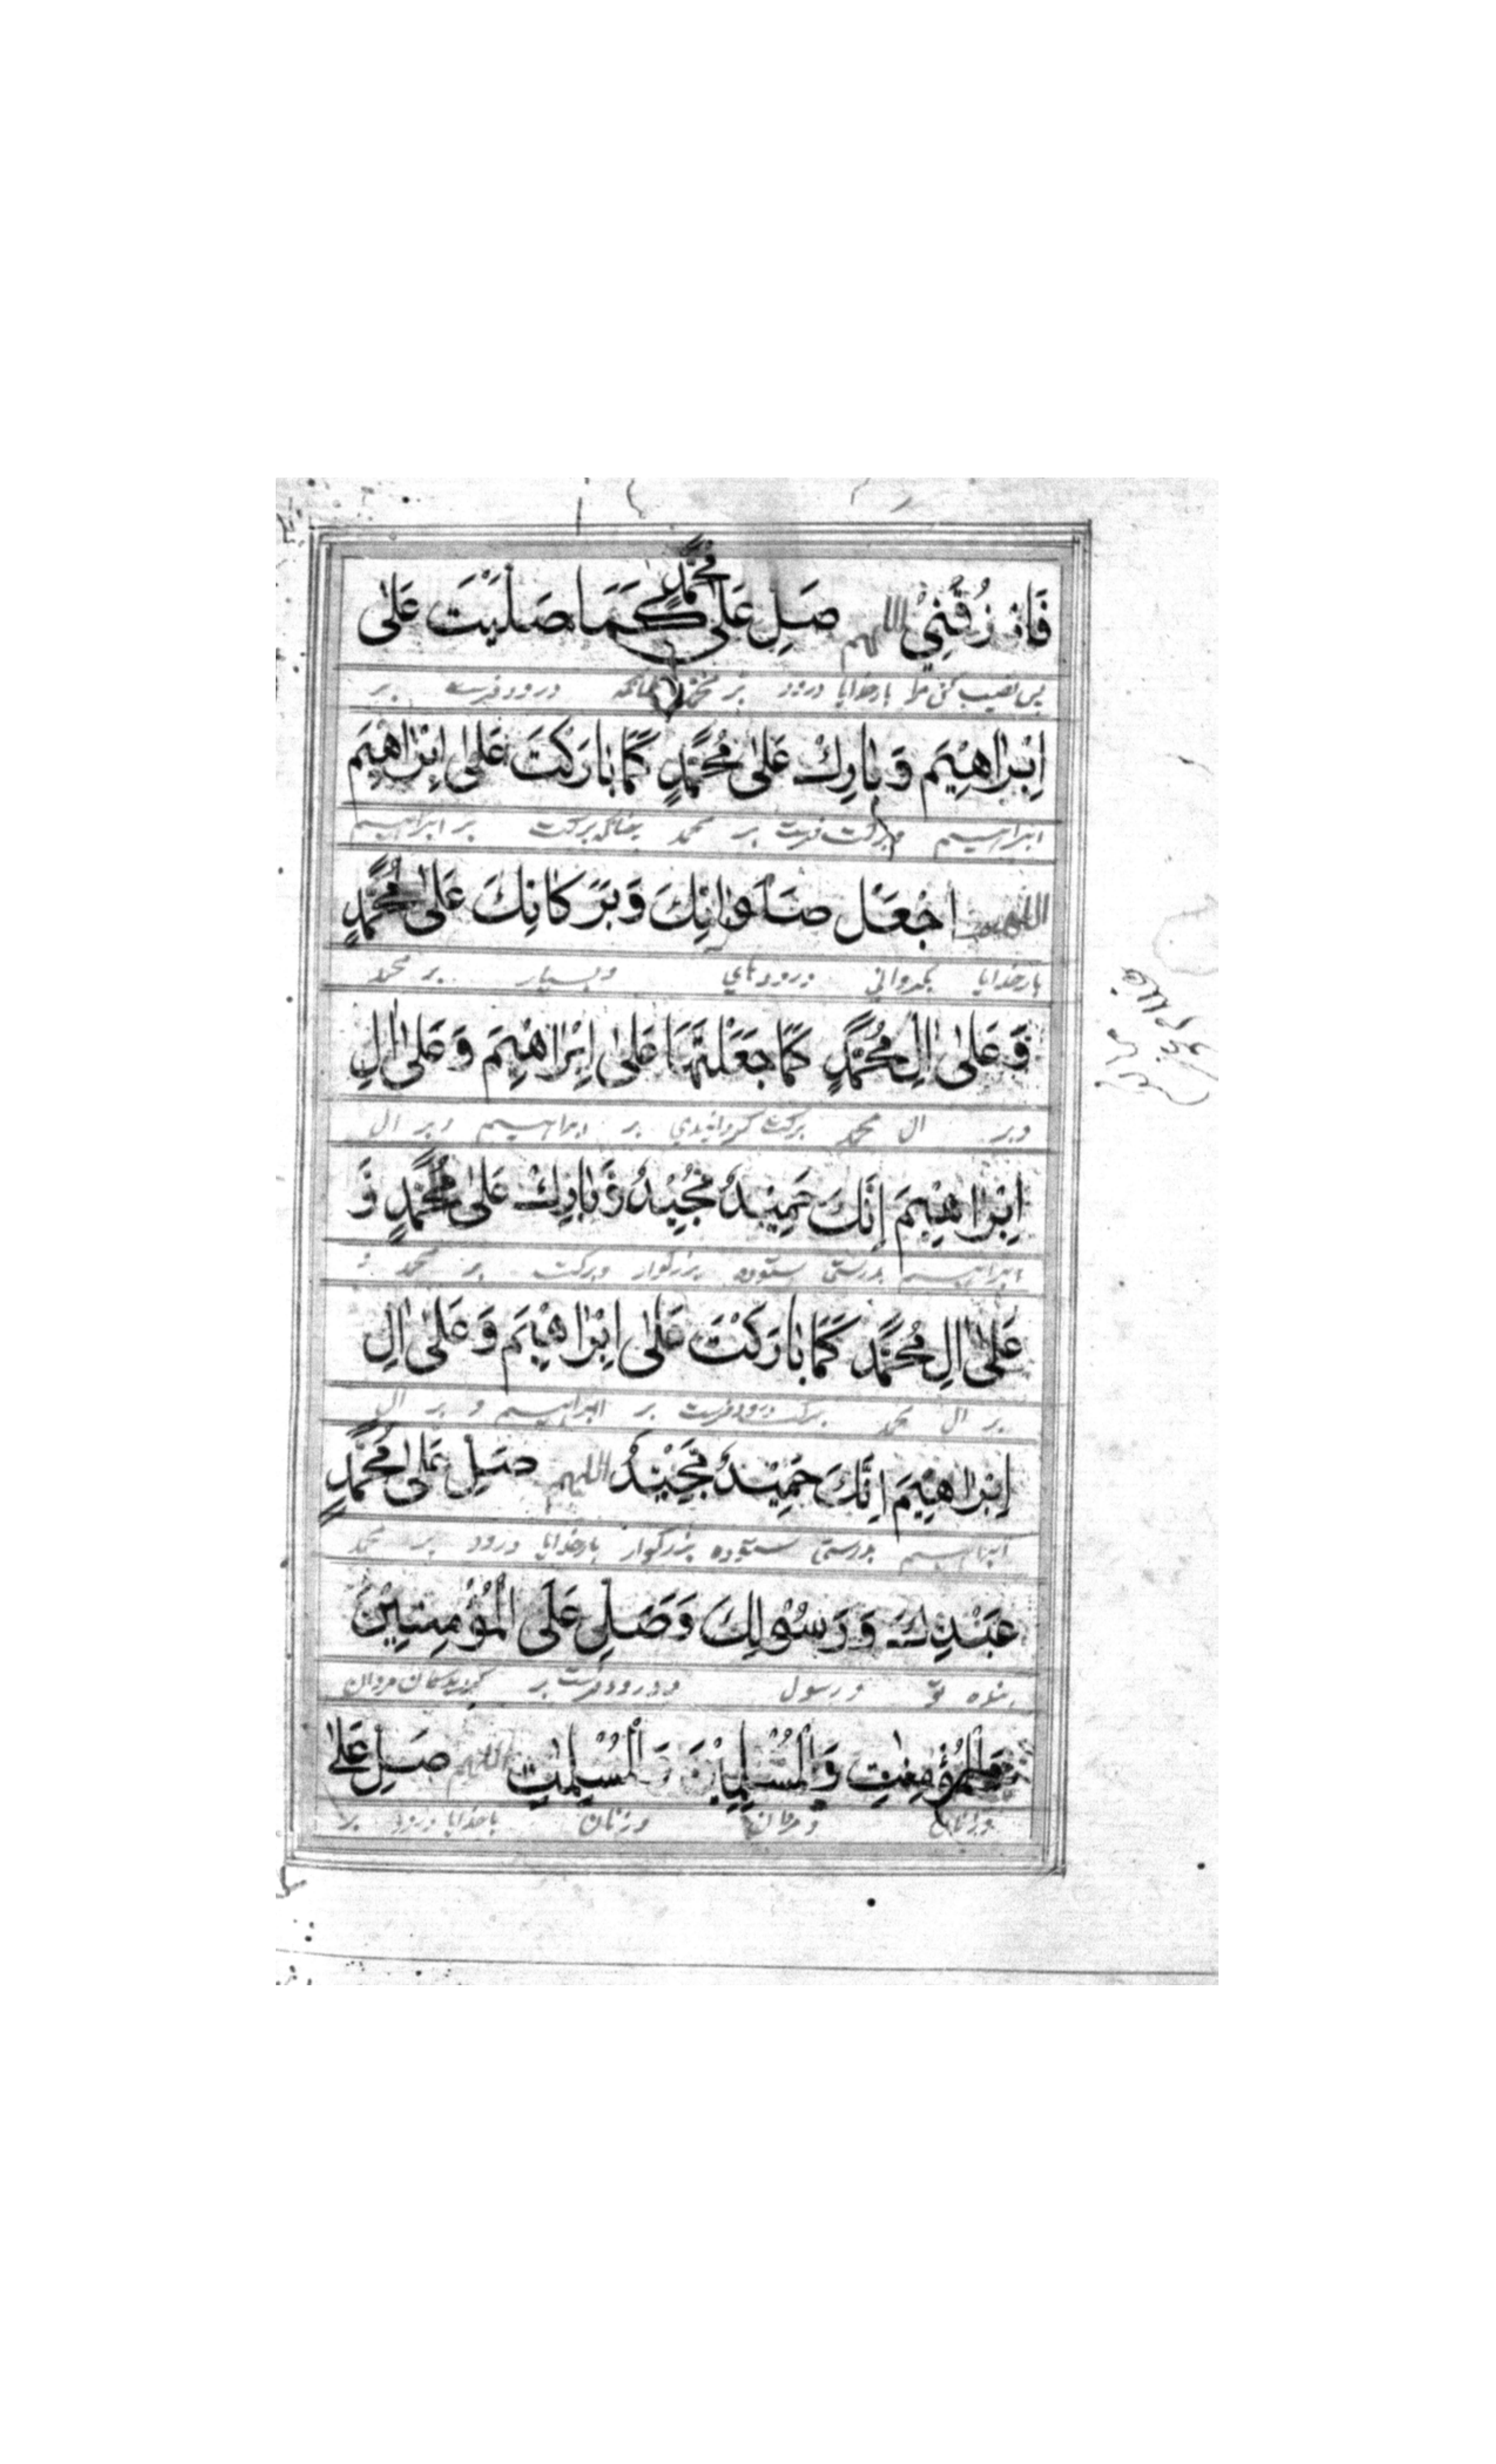 فَارْزُقْنِيْ اللهم صَلِ عَلٰى مُحَمَّدٍ كَمَا صَلَيْتَ عَلٰى
پس نصیب کن مرا بارخدایا درود بر محمد چنانکه درود فرست بر
اِبْرَاهِيْمَ وَبَارِكْ عَلٰى مُحَمَّدٍ كَمَا بَارَكْتَ عَلٰى اِبْرَاهِيْمَ
ابراهیم و برکت فرست بر محمد چنانکه برکت بر ابراهیم
اللهم اجْعَلْ صَلَوَاتِكَ وَبَرَكَاتِكَ عَلٰى مُحَمَّدٍ
بارخدایا بگردانی درودهای وبسیار بر محمد
وَعَلٰى اٰلِ مُحَمَّدٍ كَمَا جَعَلْتَهَا عَلٰى اِبْرَاهِيْمَ وَعَلٰى اٰلِ
وبر ال محمد برکت گردانیدی بر ابراهیم وبر ال
اِبْرَاهِيْمَ اِنَّكَ حَمِيْدٌ مَجِيْدٌ وَبَارِكْ عَلٰى مُحَمَّدٍ وَ
ابراهیم بدرستی ستوده بزرگوار وبرکت بر محمد و
عَلٰى اٰلِ مُحَمَّدٍ كَمَا بَارَكْتَ عَلٰى اِبْرَاهِيْمَ وَعَلٰى اٰلِ
بر ال محمد برکت درود فرست بر ابراهیم و بر ال
اِبْرَاهِيْمَ اِنَّكَ حَمِيْدٌ مَجِيْدٌ اللهم صَلِ عَلٰى مُحَمَّدٍ
ابراهیم بدرستی ستوده بزرگوار بارخدایا درود بر محمد
عَبْدِكَ وَرَسُوْلِكَ وَصَلِ عَلَى الْمُؤْمِنِيْنَ
بنده تو ورسول ودرود فرست بر مردان
وَالْمُؤْمِنٰتِ وَالْمُسْلِمِيْنَ وَالْمُسْلِمٰتِ اللهم صَلِ عَلٰى
وزنان ومردان وزنان باخدایا درود بر